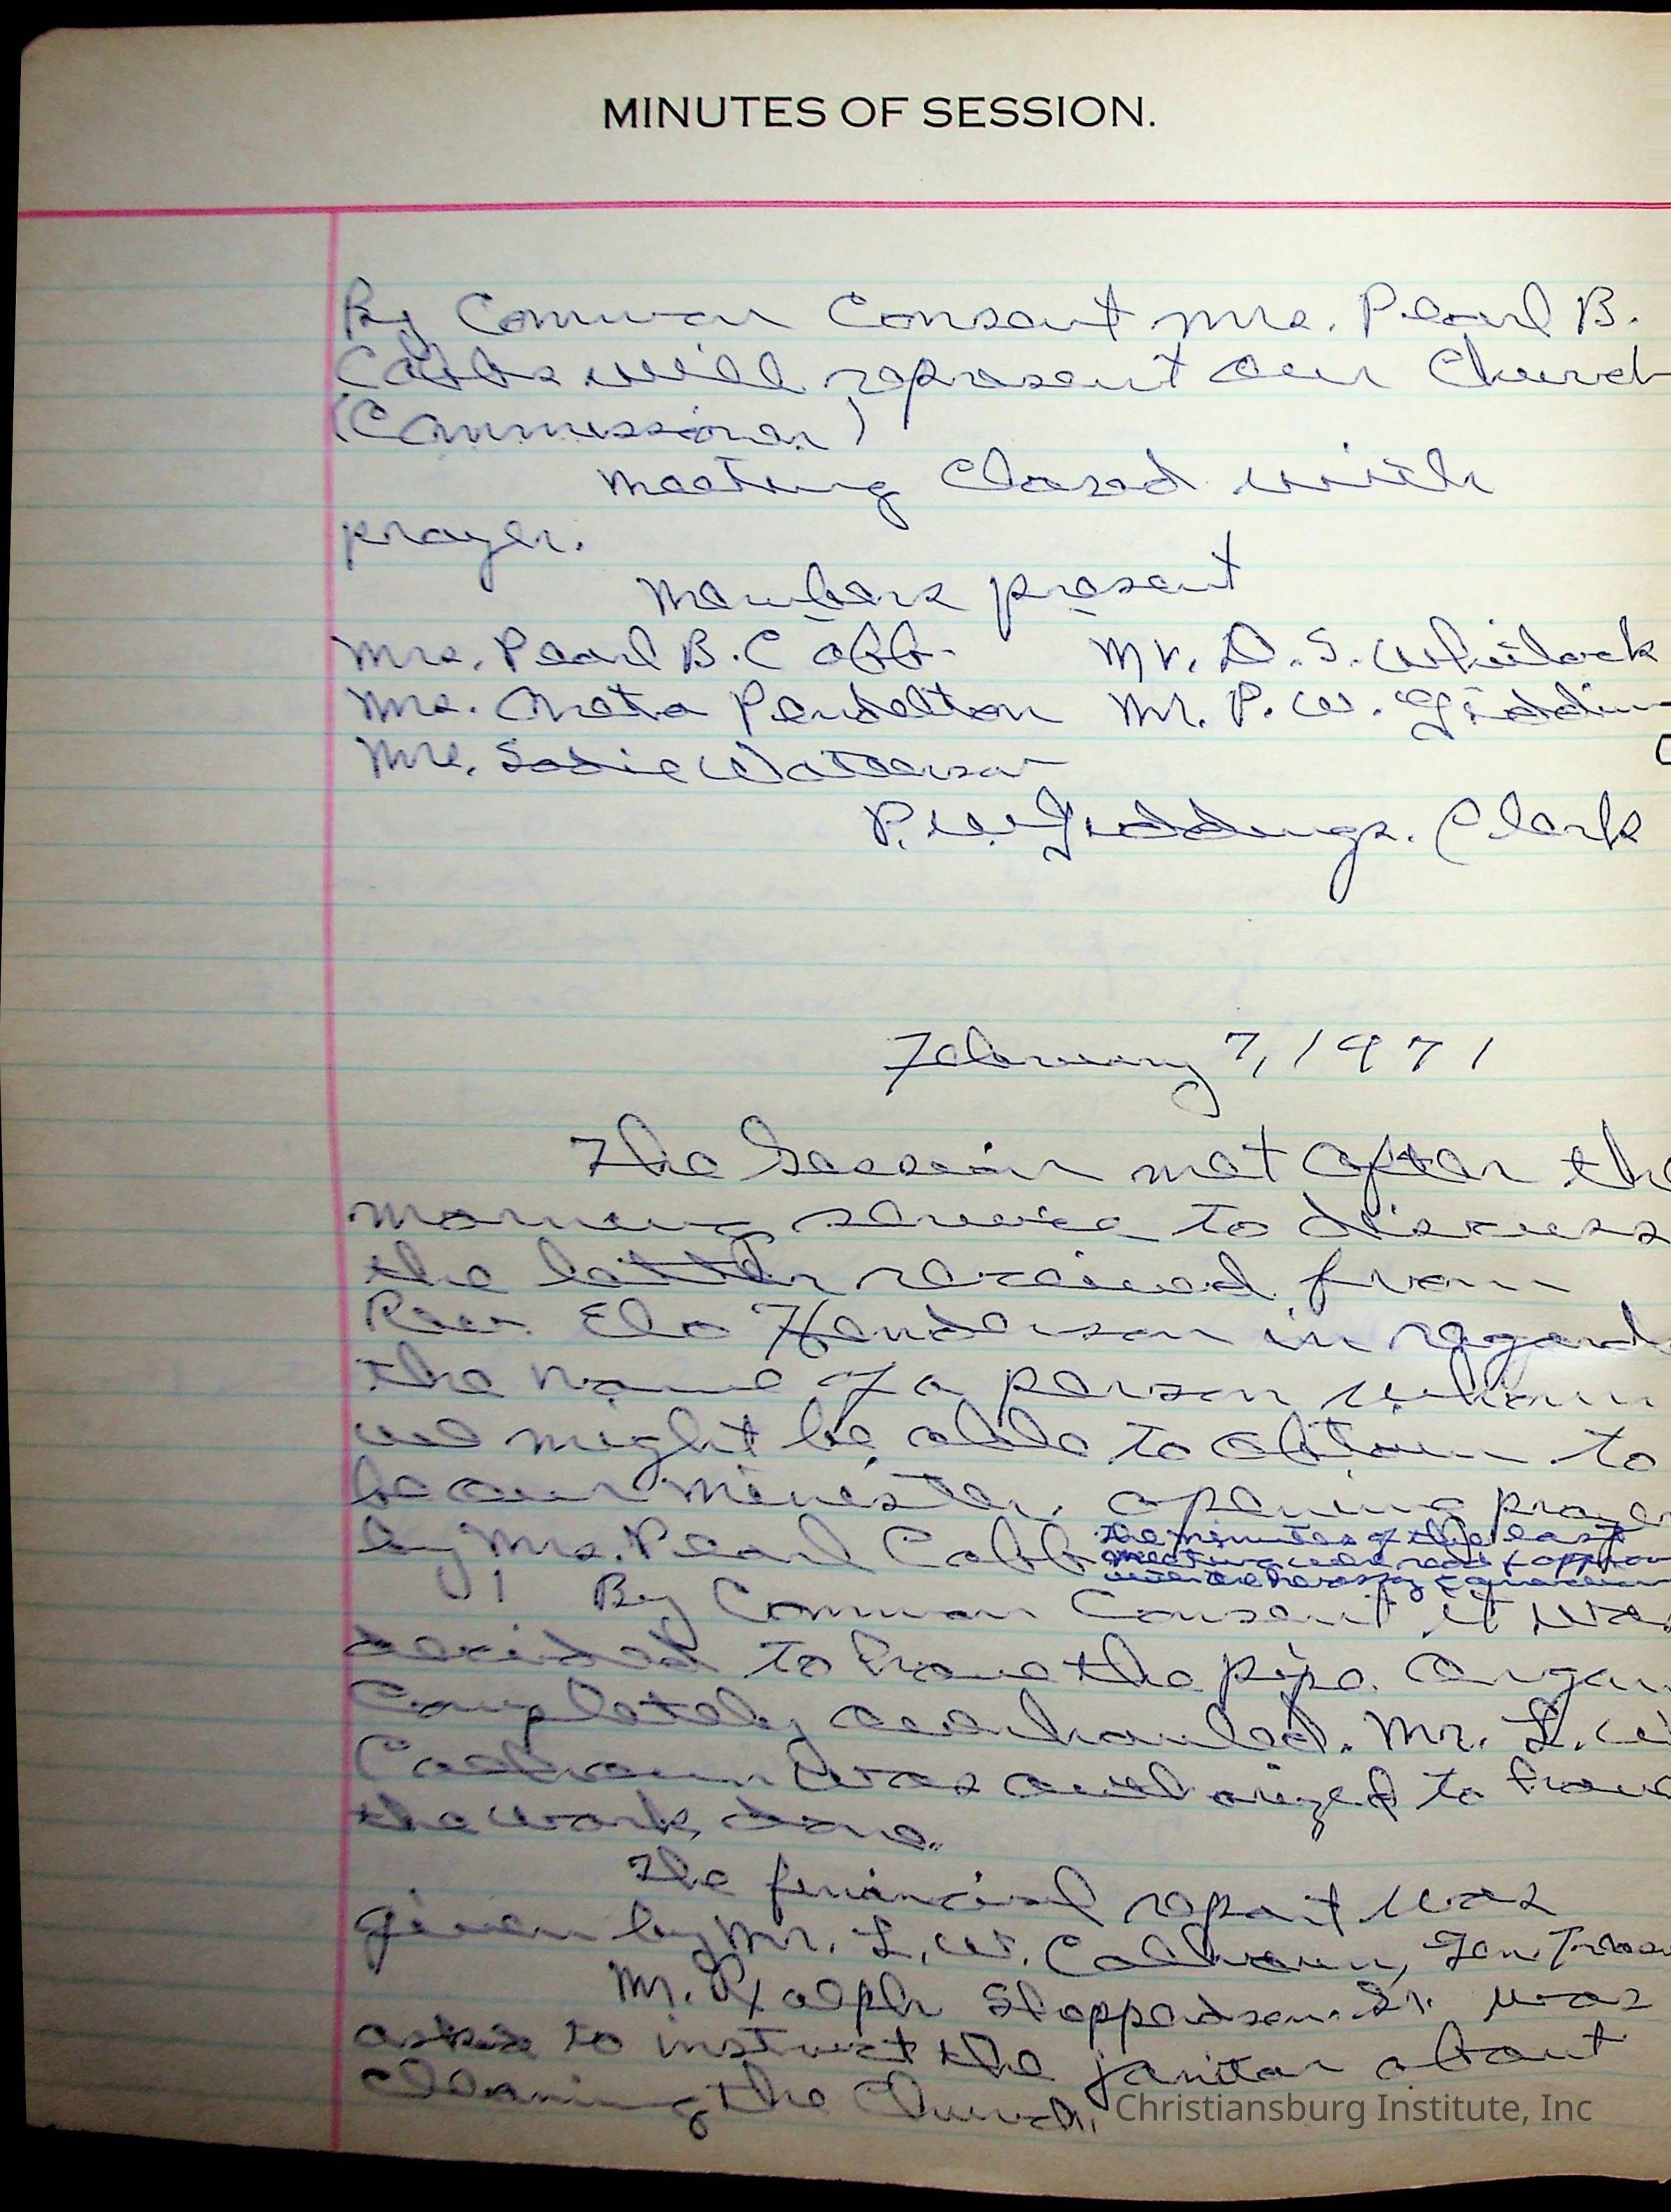 MINUTES OF SESSION.
By Common Consent Mrs. Pearl B.
Cobbs will represent our Church
(Commissioner)
Meeting Closed with
prayer.
Members present
Mrs. Pearl B. Cobb Mr. D. S. Whitlock
Mrs. Pendelton Mr. P. W. Giddin
Mrs. Sadie Watterson
P. W. Giddings. Clerk
February 7, 1971
The Session met after the
morning service to discuss
the letter received from
Rev. Elo Henderson in regard
the name of a person whom
we might be able to obtain to
be our minister. Opening prayer
by Mrs. Pearl Cobb the minutes of the last
meeting were read & approv
with the necessary
By Common Consent it was
decided to have the pipe organ
Completely overhauled. Mr. L. W
Calhoun was authorized to have
the work done.
The financial report was
given by Mr. L. W. Calhoun, Gen. Treas
Mr. Ralph Sheppardson. Sr. was
asked to instruct the janitor about
cleaning the Church.
Christiansburg Institute, Inc